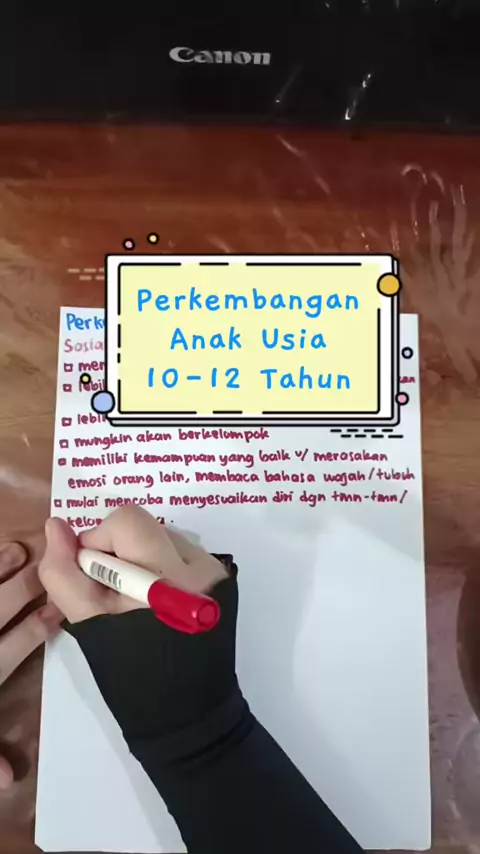 Canon
Perkembangan
Anak Usia
10-12 Tahun
Perke
Sosia
□ men
□ lebih
□ lebih
□ mungkin akan berkelompok
□ memiliki kemampuan yang baik u/ merasakan
emosi orang lain, membaca bahasa wajah/tubuh
□ mulai mencoba menyesuaikan diri dgn tmn-tmn/